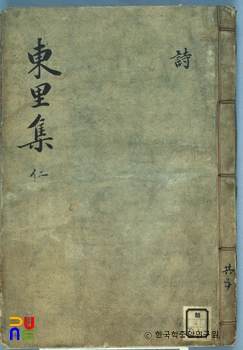 詩
東里集
仁
共
© 한국학중앙연구원